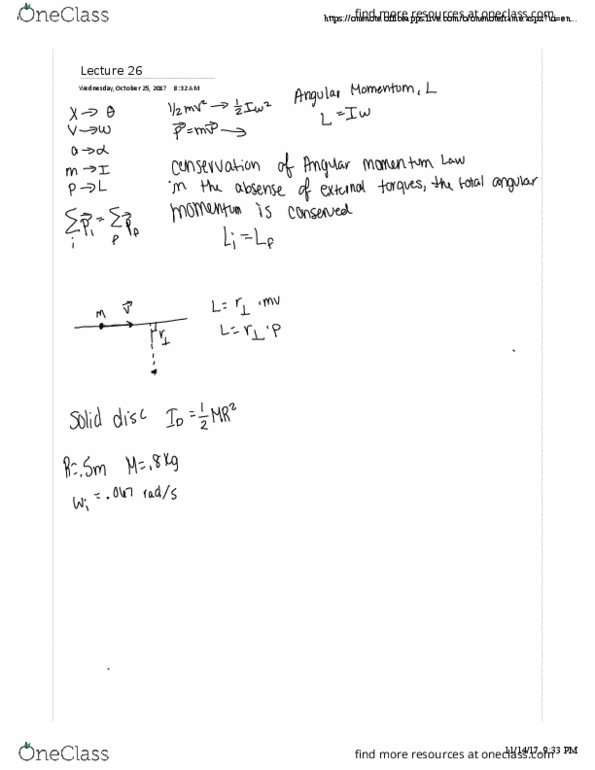 OneClass
find more resources at oneclass.com
Lecture 26
Wednesday, October 25, 2017 8:32 AM
X → θ
V → ω
a → α
m → I
p → L
1/2 mv² → 1/2 Iω²
p⃗ = mv⃗ →
Angular Momentum, L
L = Iω
Conservation of Angular momentum Law
in the absense of external torques, the total angular
momentum is conserved
Li = Lf
m v⃗
r⊥
L = r⊥ · mv
L = r⊥ · p
Solid disc I_D = 1/2 MR²
R = .5m M = .8 kg
ωi = .067 rad/s
OneClass
find more resources at oneclass.com
11/14/17, 9:33 PM